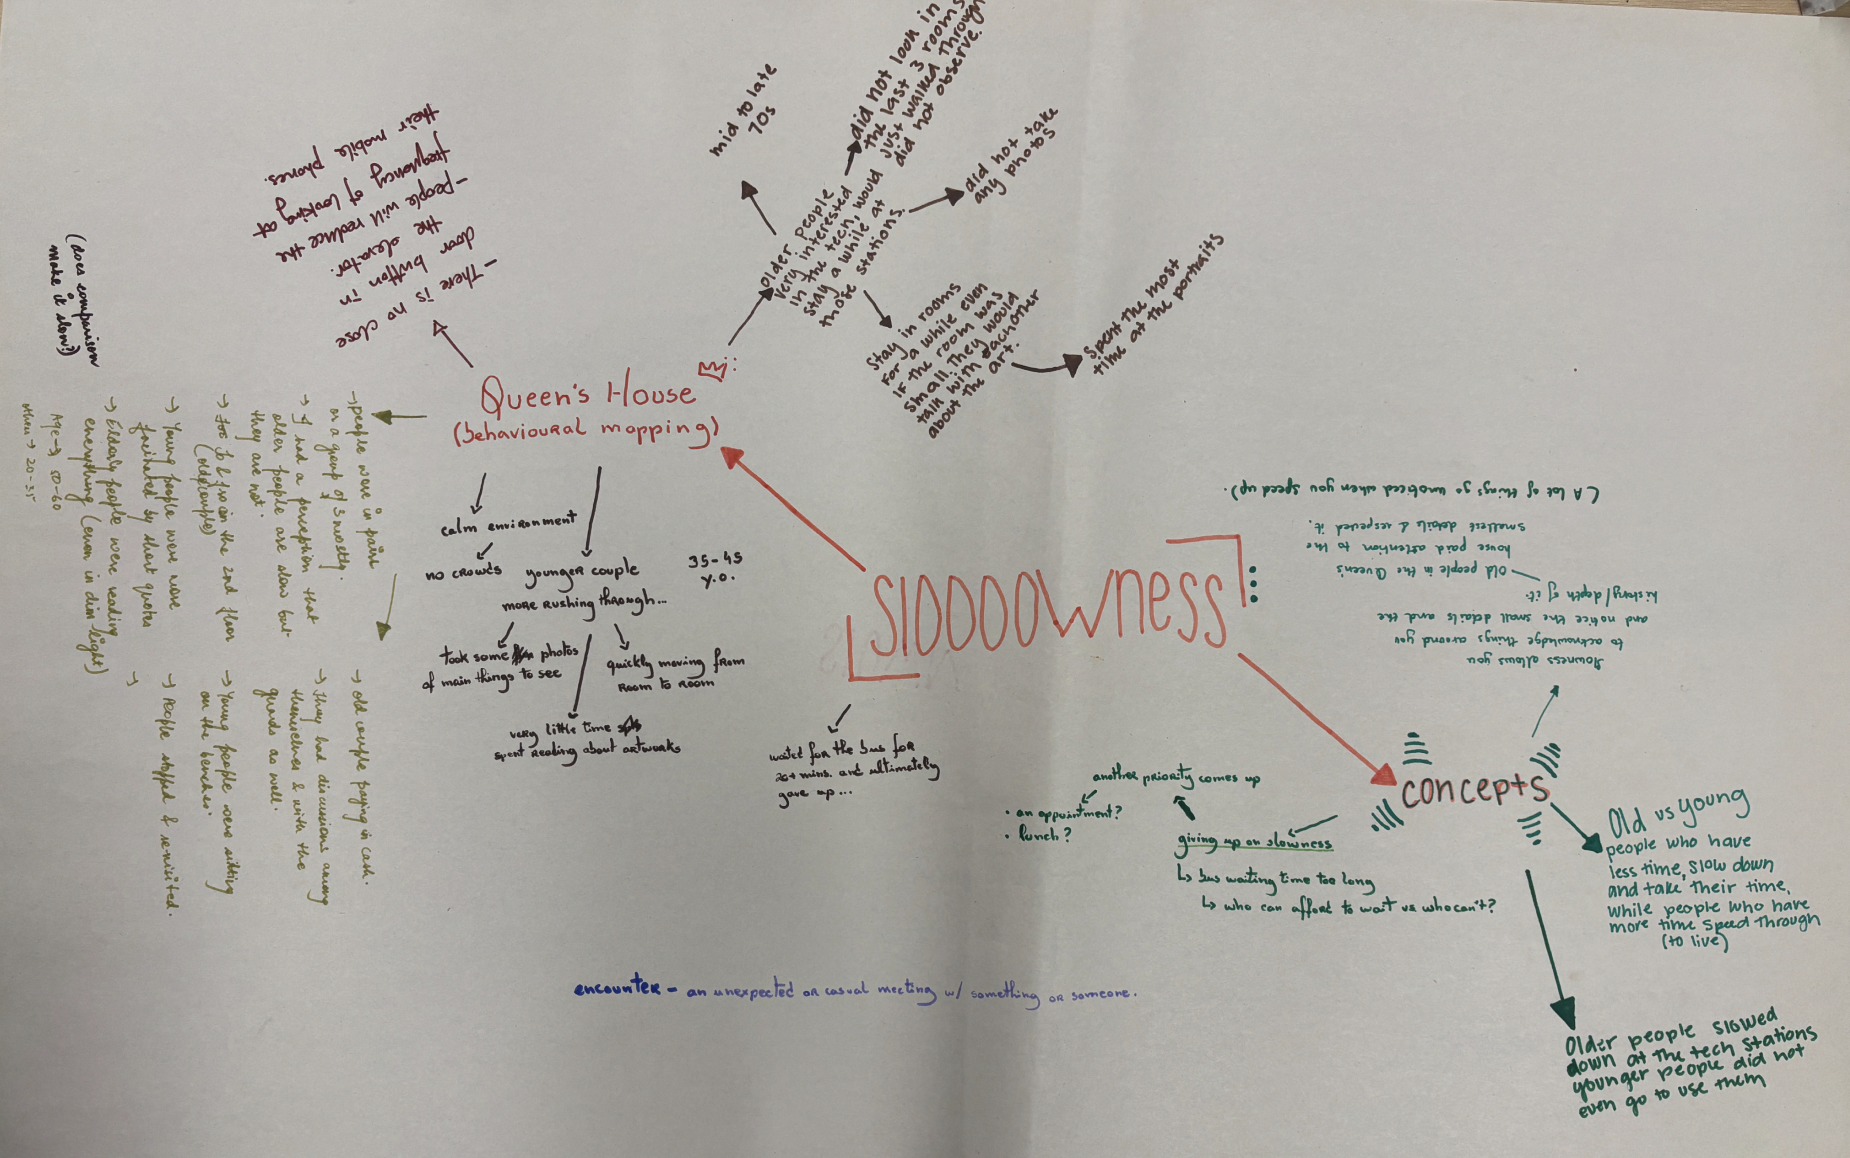 SlOOOOWNESS
Queen's House
(behavioural mapping)
mid to late
70s
older people
very interested
in the tech, would
stay a while at
those stations.
did not look in
the last 3 rooms
just walked through
did not observe.
did not take
any photos
Stay in rooms
for a while even
if the room was
small. They would
talk with eachother
about the art.
Spent the most
time at the portraits
- There is no close
door button in
the elevator.
- People will reduce the
frequency of looking at
their mobile phones.
(does comparison
make it slow?)
→ people were in pairs
or a group of 3 mostly.
→ I had a perception that
older people are slow but
they are not.
(old couple)
→ Young people were more
fascinated by short quotes
→ Elderly people were reading
everything (even in dim light)
Age → 50-60
others → 20-35
→ old couple paying in cash.
→ They had discussions among
themselves & with the
guards as well.
→ Young people were sitting
on the benches.
→ People stopped & revisited.
→
calm environment
no crowds
younger couple
more rushing through...
35-45
y.o.
took some photos
of main things to see
quickly moving from
room to room
very little time
spent reading about artworks
waited for the bus for
20+ mins. and ultimately
gave up...
concepts
slowness allows you
to acknowledge things around you
and notice the small details and the
history/depth of it.
Old people in the Queen's
house paid attention to the
smallest details & respected it.
(A lot of things go unnoticed when you speed up).
another priority comes up
• an appointment?
• lunch?
giving up on slowness
↳ bus waiting time too long
↳ who can afford to wait vs who can't?
Old vs young
people who have
less time, slow down
and take their time,
while people who have
more time speed through
(to live)
Older people slowed
down at the tech stations
younger people did not
even go to use them
encounter - an unexpected or casual meeting w/ something or someone.